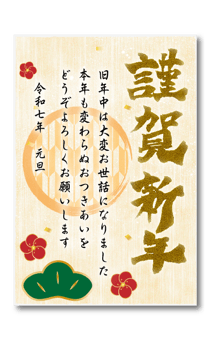 謹賀新年
旧年中は大変お世話になりました
本年も変わらぬおつきあいを
どうぞよろしくお願いします
令和七年 元旦